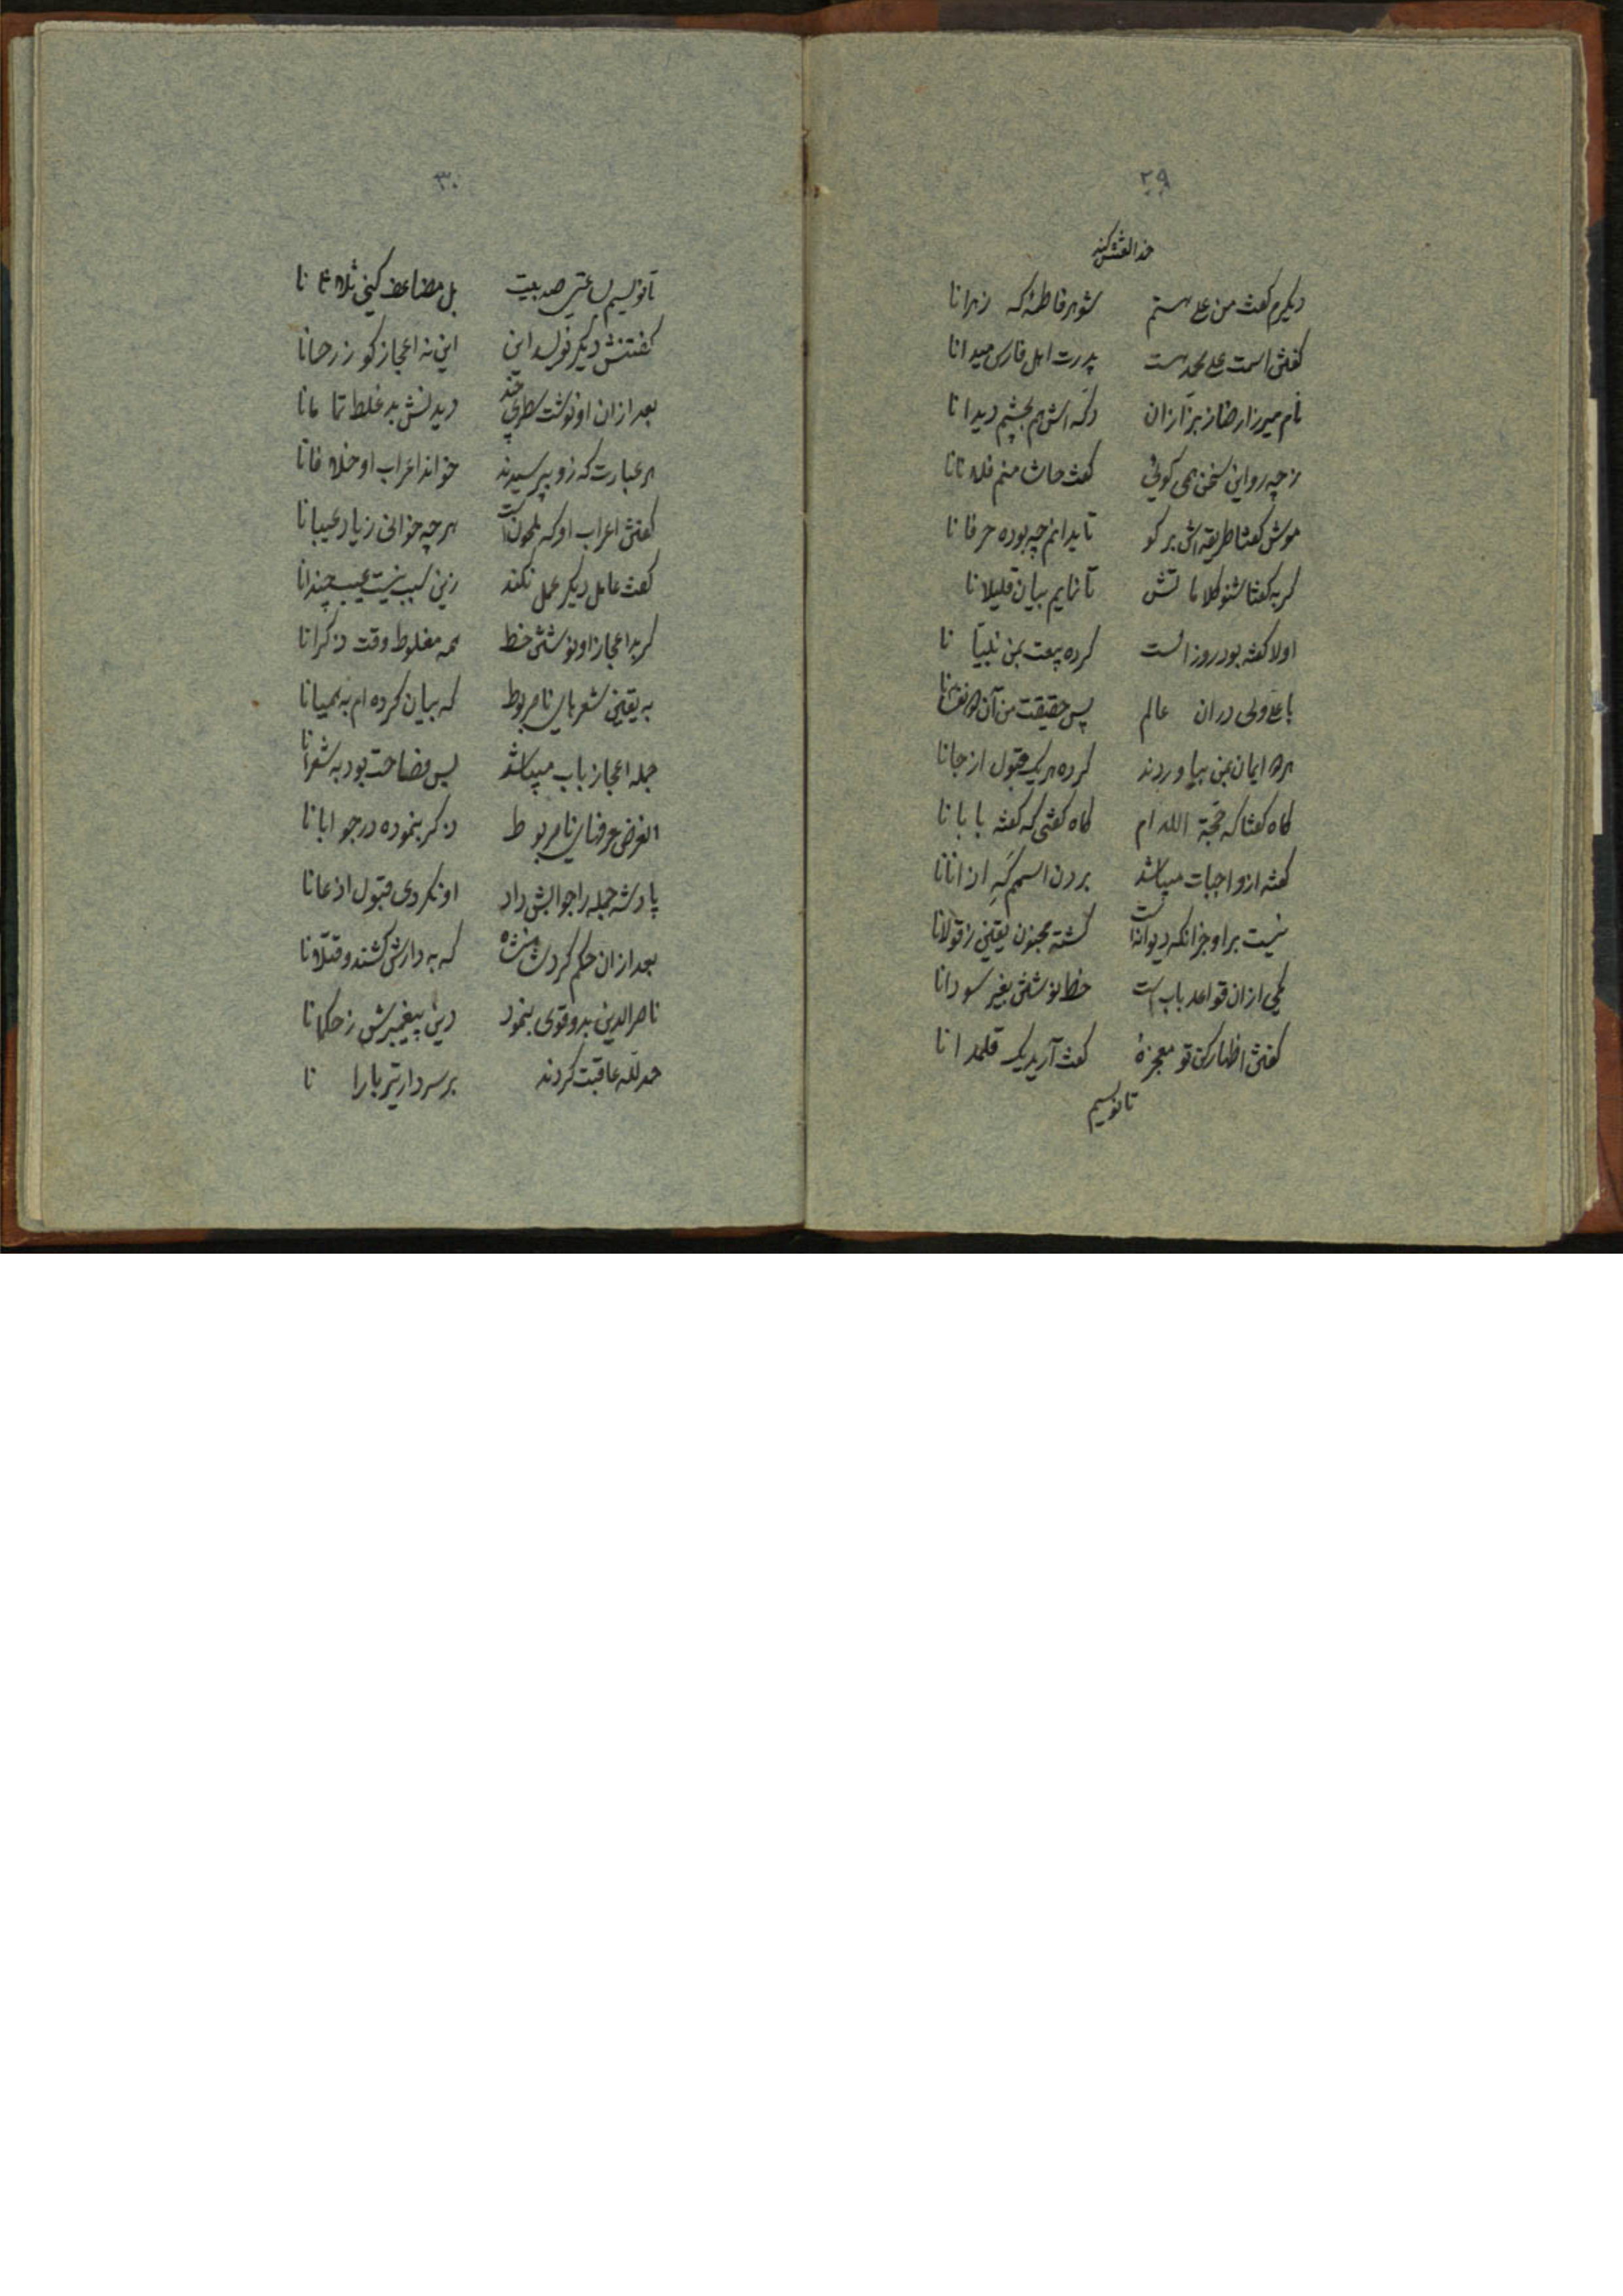 ۲۹
خدا لعنتش کند
دیگرم گفت من علی هستم شوهر فاطمه که زهرانا
گفتش اسمت علی محمد هست پدرت اهل فارس میدانا
نام میرزا رضا ز بزازان دکه اش هم بچشم دیدانا
ز چه رو این سخن همی گوئی گفت حاشا منم فلاناتا
موش گفتا طریقه اش برگو تا بدانم چه بوده حرفانا
گربه گفتا شنو کلاماتش تا نمایم بیان قلیلانا
اولا گفته بود روز الست کرده بیعت بمن نبیانا
با علی ولی در آن عالم پس حقیقت من آن
همه ایمان بمن بیاوردند کرده هر یک قبول از جانا
گاه گفتا که حجة اللهم گاه گفتی که گفته بابانا
گفته از واجبات میباشد بردن اسمم که اذانانا
نیست بر او جز آنکه دیوانه است گشته مجنون یقین ز قولانا
یکی از آن قواعد باب است خط نوشتش بغیر سودانا
گفتش اظهار کن تو معجزهٔ گفت آرید یک قلمدانا
تا نویسیم
۳۰
تا نویسیم ساعتی صد بیت بل مضاعف کنی ثلاثانا
گفتنش دیگر نویسد این این نه اعجاز گو ز رحمانا
بعد از آن او نوشت سطری چند دیدنش بد غلط تمامانا
هر عبارت که زو بپرسیدند خواند اعراب او خلافانا
گفتش اعراب او که ملحون است هر چه خوانی زیاد عیبانا
گفت عامل دیگر عمل نکند زین سبب نیست عیب چندانا
گر بد اعجاز او نوشتن خط همه مغلوط وقت ذکرانا
به یقین شعرهای نامربوط که بیان کرده ام به همیانا
جمله اعجاز باب میباشد پس فصاحت بود به شعرانا
الغرض حرفهای نامربوط ذکر بنموده در جوابانا
پادشه جمله را جوابش داد او نکردی قبول اذعانا
بعد از آن حکم کرد شاهنشه که به دارش کشند و قتلانا
ناصرالدین بدو قوی بنمود دین پیغمبرش ز حکمانا
حمد لله عاقبت کردند بر سر دار تیر بارانا